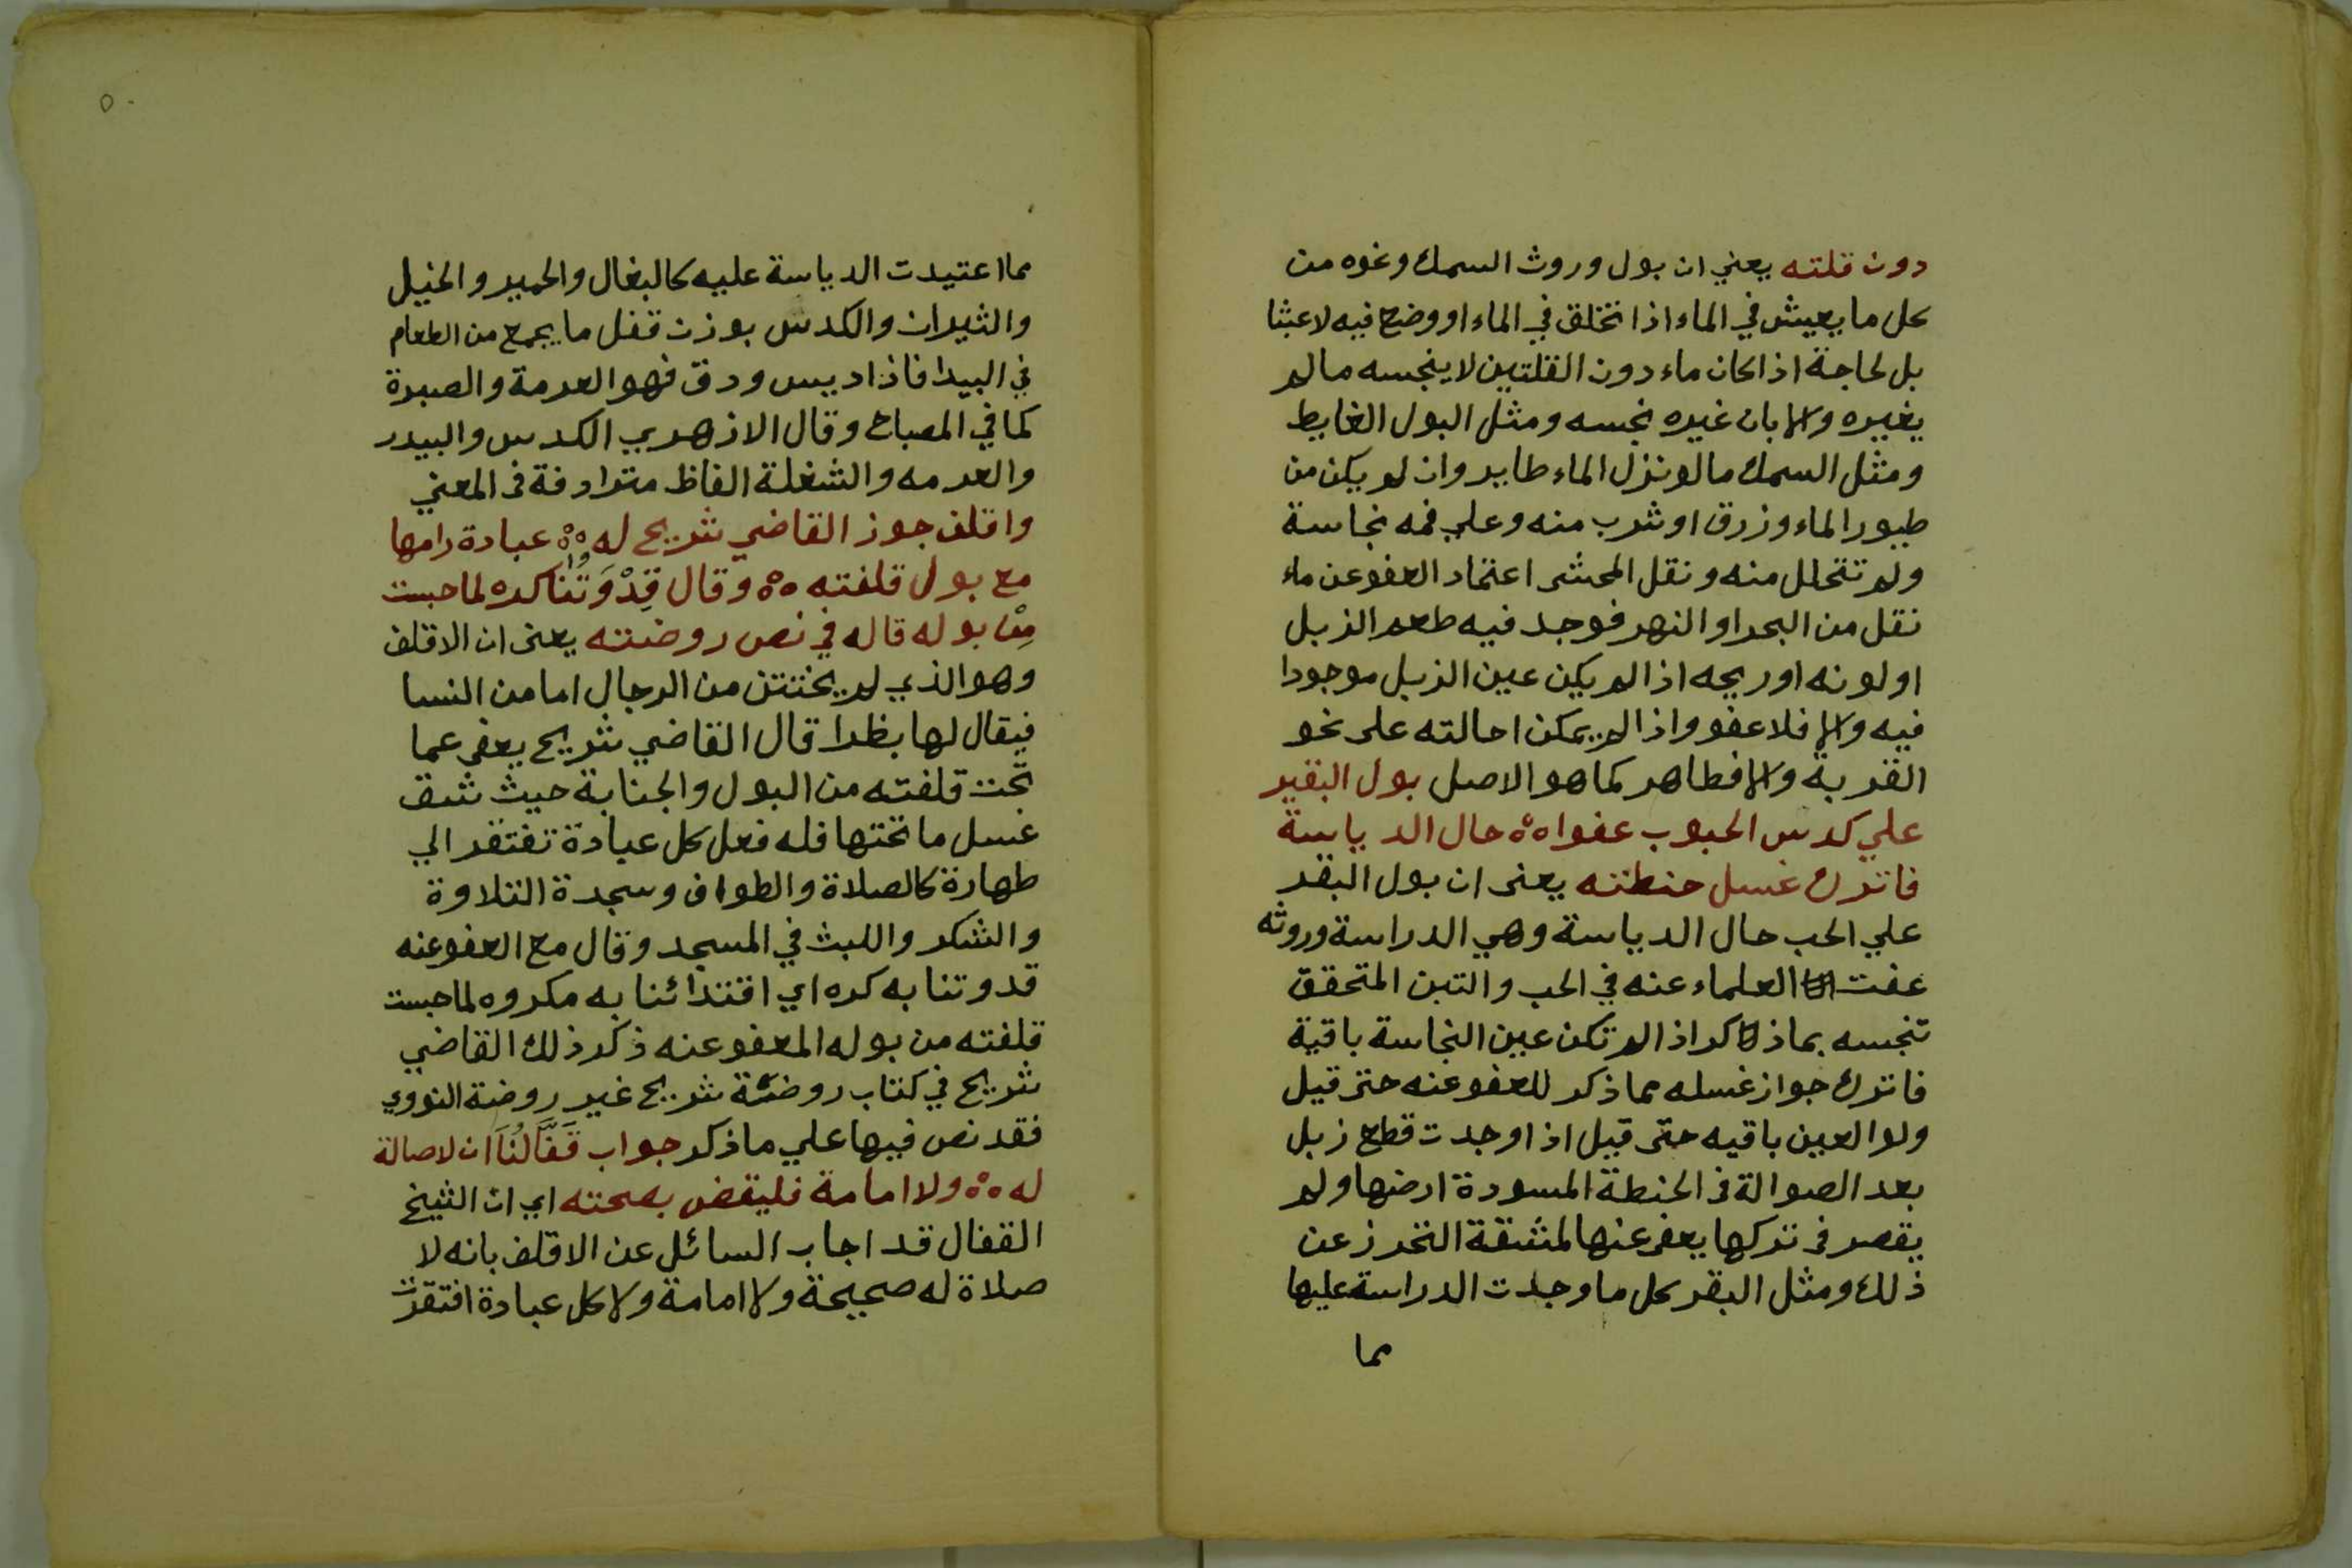 دون قلته يعني ان بول وروث السمك ونحوه من
كل ما يعيش في الماء اذا تخلق في الماء او وضع فيه لا عبثا
بل لحاجة اذا كان ماء دون القلتين لا ينجسه ما لم
يغيره والا بان غيره نجسه ومثل البول الغايط
ومثل السمك ما لو نزل الماء طاير وان لم يكن من
طيور الماء وزرق او شرب منه وعلي فمه نجاسة
ولم تتحلل منه ونقل المحشى اعتماد العفو عن ماء
نقل من البحر او النهر فوجد فيه طعم الزبل
او لونه او ريحه اذا لم يكن عين الزبل موجودا
فيه والا فلا عفو واذا لم يمكن احالته على نحو
القربة والا فطاهر كما هو الاصل بول البقير
علي كدس الحبوب عفوا ه حال الدياسة
فاترك غسل حنطته يعنى ان بول البقر
علي الحب حال الدياسة وهي الدراسة وروثه
عفت العلماء عنه في الحب والتبن المتحقق
تنجسه بما ذكر اذا لم تكن عين النجاسة باقية
فاترك جواز غسله مما ذكر للعفو عنه حتى قيل
ولو العين باقيه حتى قيل اذا وجدت قطع زبل
بعد الصوالة فى الحنطة المسودة ارضها ولم
يقصر فى تركها يعفى عنها لمشقة التحرز عن
ذلك ومثل البقر كل ما وجدت الدراسة عليها
مما
٥٠
مما اعتيدت الدياسة عليه كالبغال والحمير والخيل
والثيران والكدس بوزن قفل ما يجمع من الطعام
في البيدا فاذا ديس ودق فهو العرمة والصبرة
كما في المصباح وقال الازهري الكدس والبيدر
والعرمه والشغلة الفاظ مترادفة فى المعني
واقلف جوز القاضي شريح له ه عبادة رامها
مع بول قلفته ه وقال قِدْوَتُنا كره لما حبست
مِنْ بوله قاله في نص روضته يعنى ان الاقلف
وهو الذي لم يختتن من الرجال اما من النسا
فيقال لها بظرا قال القاضي شريح يعفى عما
تحت قلفته من البول والجنابة حيث شق
غسل ما تحتها فله فعل كل عبادة تفتقر الي
طهارة كالصلاة والطواف وسجدة التلاوة
والشكر واللبث في المسجد وقال مع العفو عنه
قدوتنا به كره اي اقتدائنا به مكروه لما حبست
قلفته من بوله المعفو عنه ذكر ذلك القاضي
شريح في كتاب روضة شريح غير روضة النووي
فقد نص فيها علي ما ذكر جواب قَفَّالُنَا ان لا صالة
له ه ولا امامة فليقض بصحته اي ان الشيخ
القفال قد اجاب السائل عن الاقلف بانه لا
صلاة له صحيحة ولا امامة ولا كل عبادة افتقرت